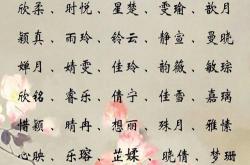 欣柔、时悦、星楚、雯瑜、歆月
颖真、雨玲、铃云、静宣、曼晓
婵月、婧雯、佳玲、韵薇、敏琼
欣铭、睿乐、倩宁、佳雪、嘉瑀
惜颖、晴冉、想丽、珠月、雅愫
心映、乐瑢、芷蝶、晓倩、梦珊